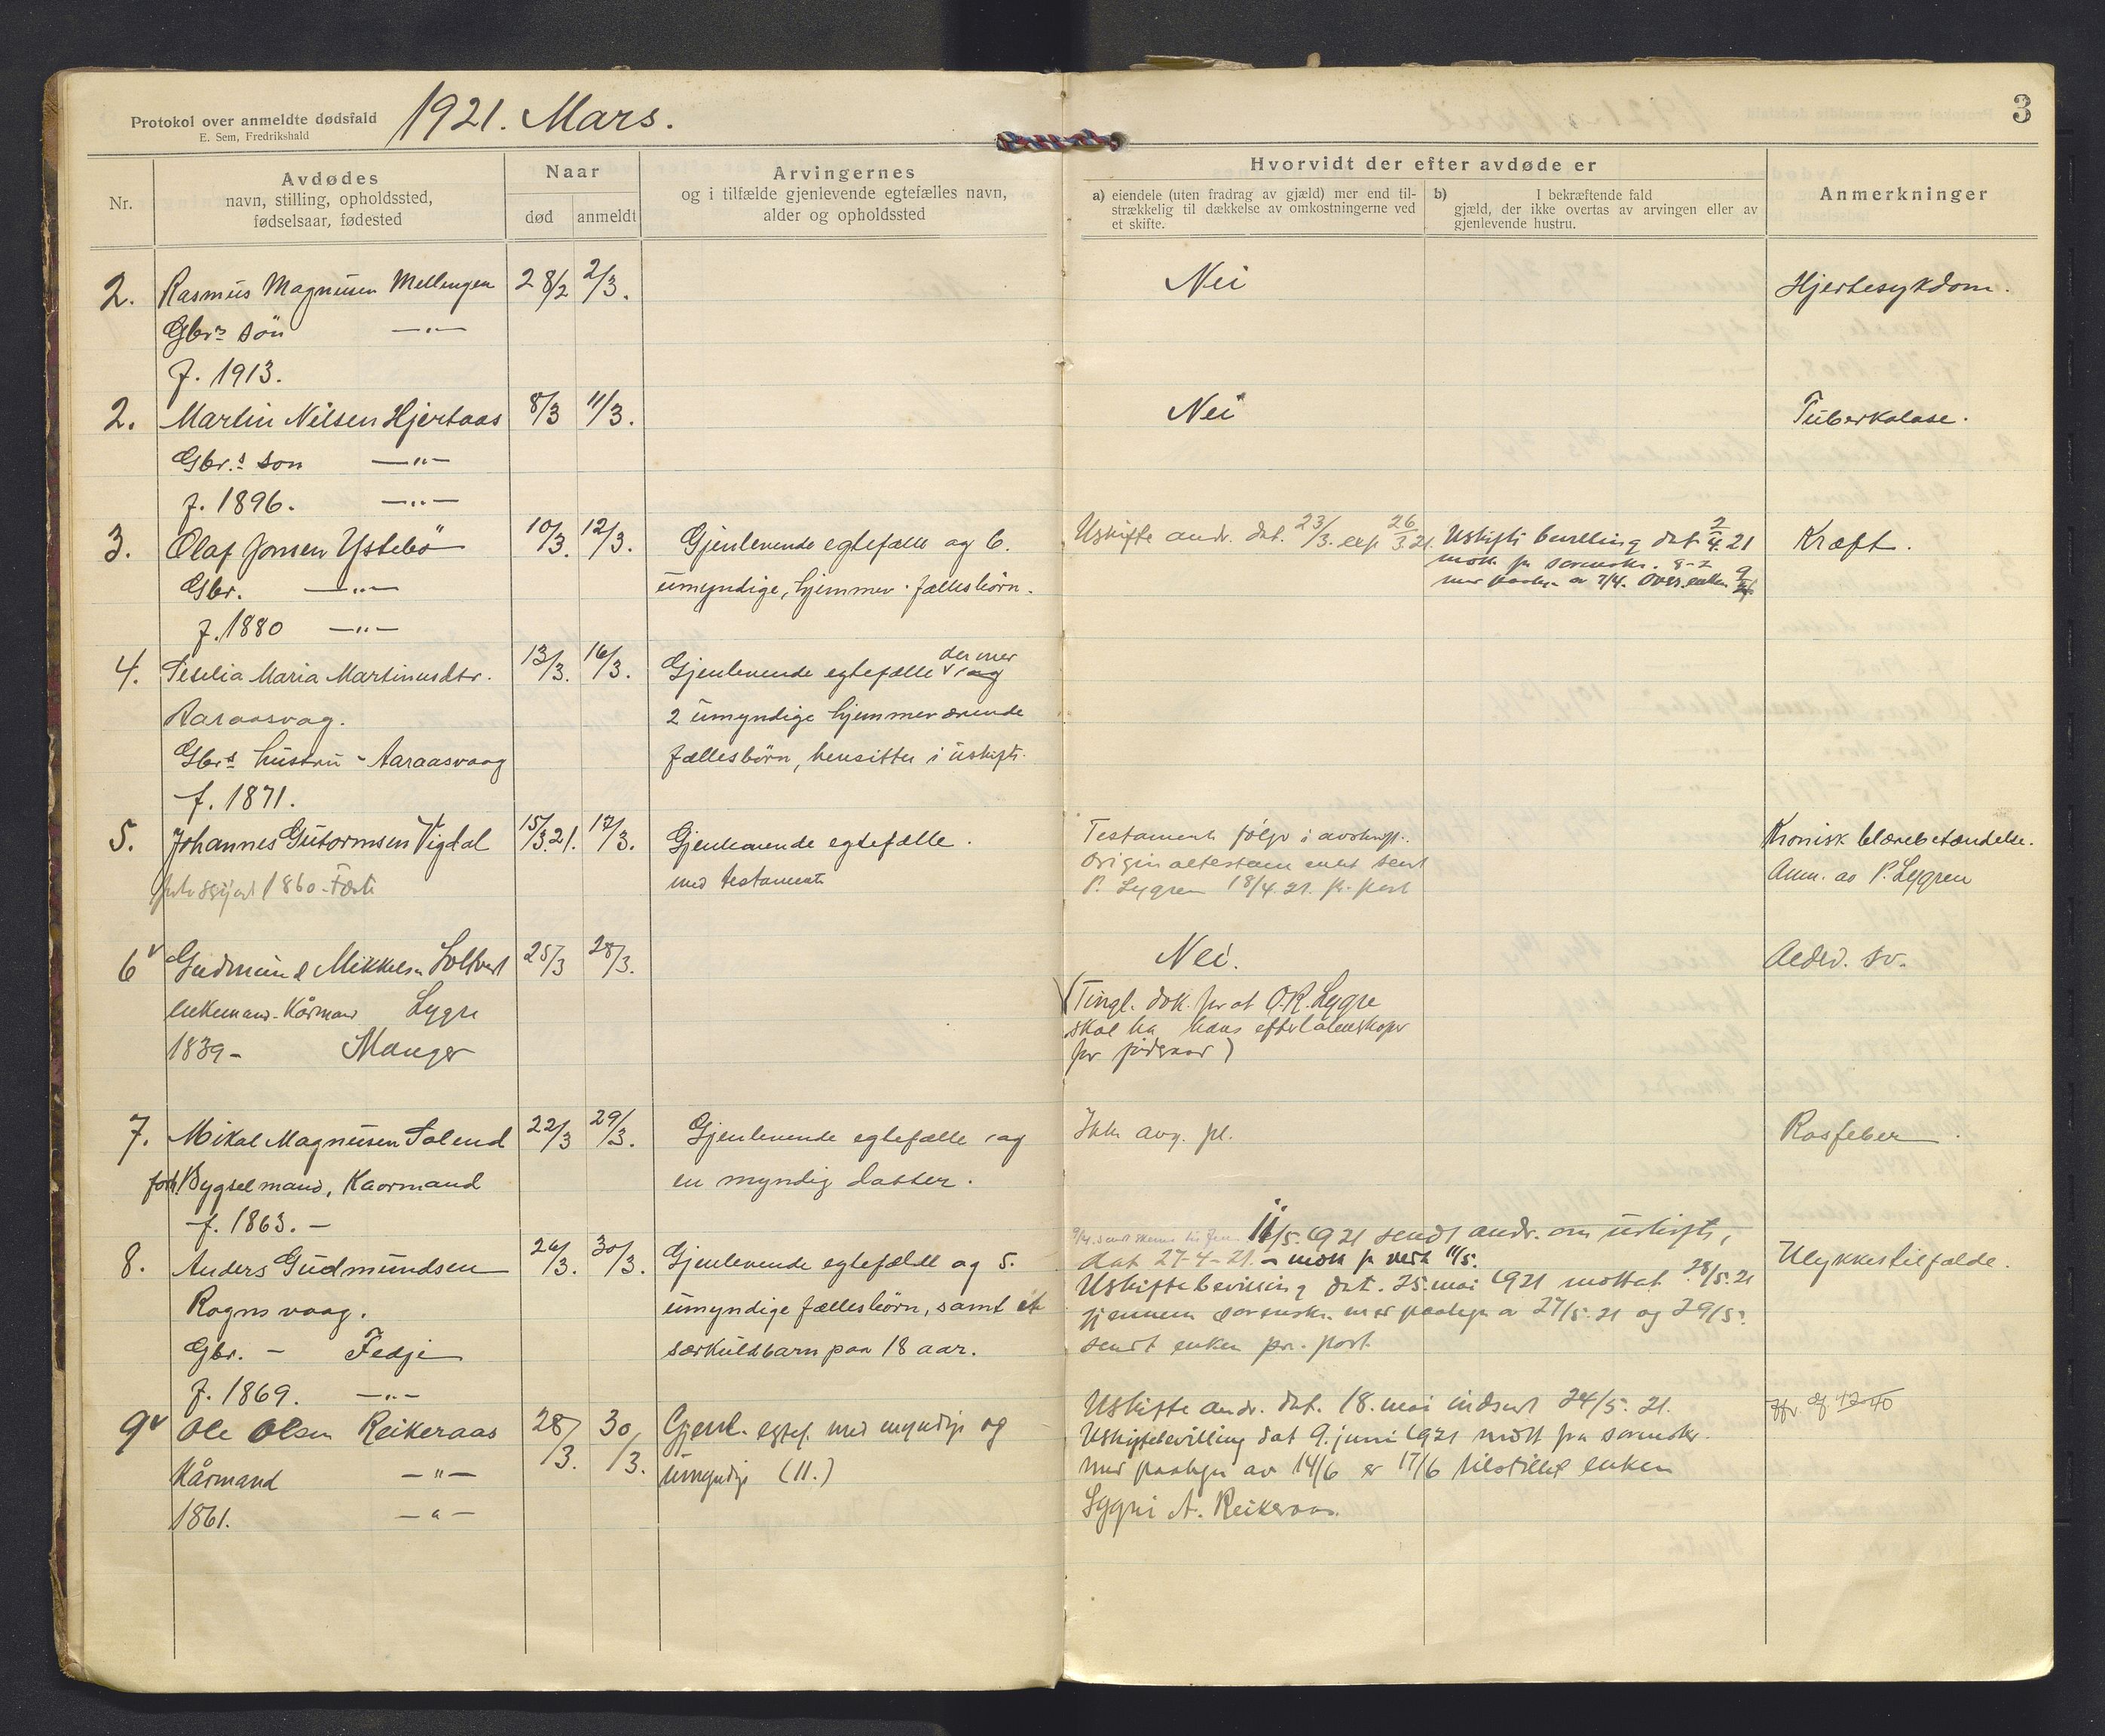 Protokol over anmeldte dødsfald
E. Sem, Fredrikshald
1921. Mars.
3
Nr.
Avdødes
navn, stilling, opholdssted,
fødselsaar, fødested
Naar
død
anmeldt
Arvingernes
og i tilfælde gjenlevende egtefælles navn,
alder og opholdssted
Hvorvidt der efter avdøde er
a) eiendele (uten fradrag av gjæld) mer end til-
strækkelig til dækkelse av omkostningerne ved
et skifte.
b) I bekræftende fald
gjæld, der ikke overtas av arvingen eller av
gjenlevende hustru.
Anmerkninger
2. Rasmus Magnusen Mellingen 28/2 2/3. Nei Hjertesykdom.
Gbrs søn —"—
f. 1913.
2. Martin Nilsen Hjertaas 8/3 11/3. Nei Tuberkolose.
Gbr.s son —"—
f. 1896. —"—
3. Olaf Jonsen Ystebö 10/3. 12/3. Gjenlevende egtefælle og 6. Uskifte andr. dat. 23/3. exp 26/3 21. Uskifte bevilling dat 2/4 21 Kræft.
Gbr. —"— umyndige, hjemmev. fællesbörn. 7/4. Overs. enken
f. 1880 —"—
4. Maria Martinusdtr. 13/3. 16/3. Gjenlevende egtefælle der mer
Aaraasvaag. 2 umyndige hjemmeværende
Gbrs hustru - Aaraasvaag fællesbörn, hensitter i uskifte.
f. 1871.
5. Johannes Gutormsen Vigdal 15/3.21. 17/3. Gjenlevende egtefælle. Testament følge i avskrift. Kronisk blærebetændelse.
1860 med testamente Originaltestamentet sent Anm. av P. Lygren
P. Lygren 18/4. 21. pr. post
6 Gudmund Mikkelsen 25/3 28/3. Nei. Aldrd. sv.
enkemand. Kårmand Lygre (Tingl. dok. for at O.R. Lygre
1839 - Manger skal ha hans efterladenskaper
for
7. Mikal Magnusen 22/3 29/3. Gjenlevende egtefælle og Ikke avg. pl. Rosfeber.
Bygselmand, Kaarmand en myndig datter.
f. 1863. —
11/5. 1921 sendt andr. om uskifte,
8. Anders Gudmundsen 26/3. 30/3. Gjenlevende egtefælle og 5. dat 27-4-21. 11/5. Ulykkestilfælde.
Rognsvaag. umyndige fællesbörn, samt et Uskiftebevilling dat. 25. mai 1921 mottat 28/5. 21
Gbr. - Fedje særkuldbarn paa 18 aar. gjennem sorenskr. med paategn av 27/5. 21 og 29/5.
f. 1869. —"— sendt enken pr. post
9 Ole Olsen Reikeraas 28/3. 30/3. Gjenl. egtef. med myndige og Uskifte andr. dat. 18. mai indsendt 24/5. 21.
Kårmand —"— umyndige (11.) Uskiftebevilling dat 9. juni 1921 mott fra sorenskr.
1861. —"— med paategn av 14/6 er 17/6 tilstillet enken
A. Reikeraas.